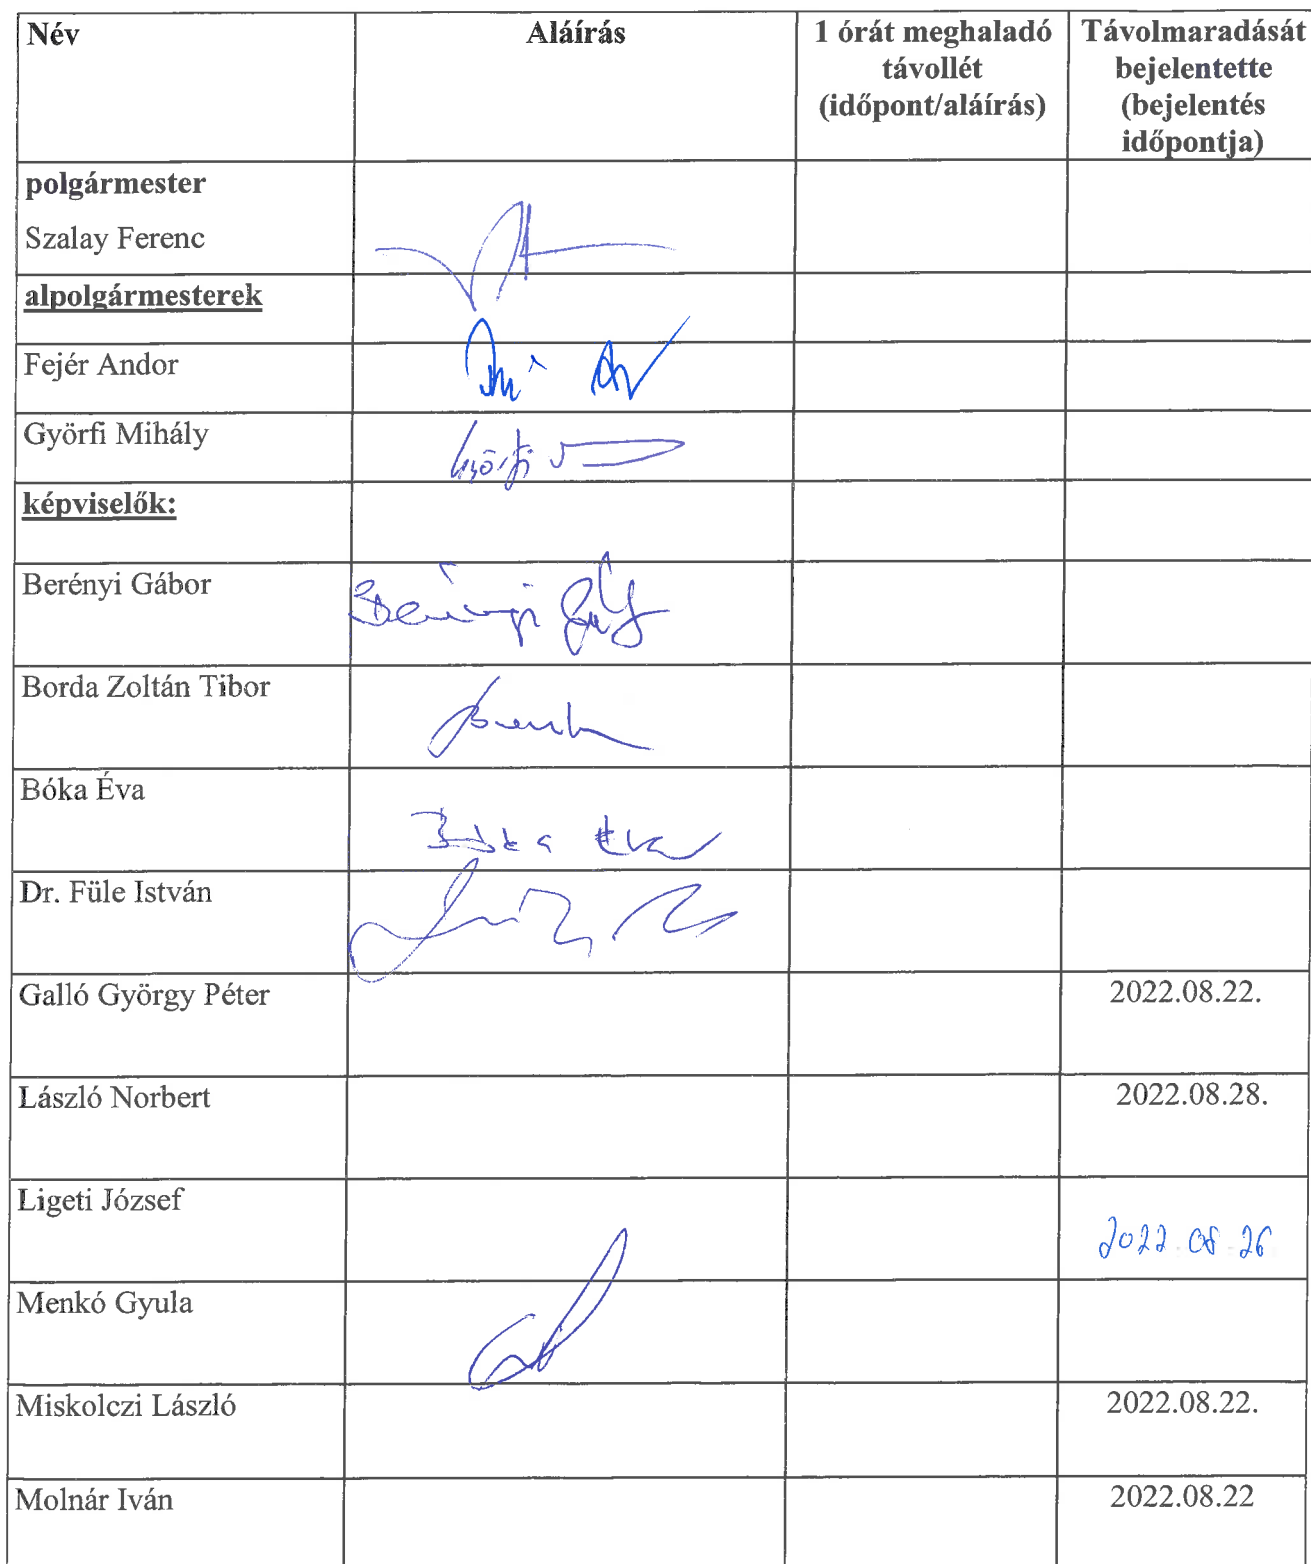 Név
Aláírás
1 órát meghaladó
távollét
(időpont/aláírás)
Távolmaradását
bejelentette
(bejelentés
időpontja)
polgármester
Szalay Ferenc
alpolgármesterek
Fejér Andor
Györfi Mihály
Györfi
képviselők:
Berényi Gábor
Berényi Gábor
Borda Zoltán Tibor
Borda
Bóka Éva
Bóka Éva
Dr. Füle István
Galló György Péter
2022.08.22.
László Norbert
2022.08.28.
Ligeti József
2022.08.26
Menkó Gyula
Miskolczi László
2022.08.22.
Molnár Iván
2022.08.22